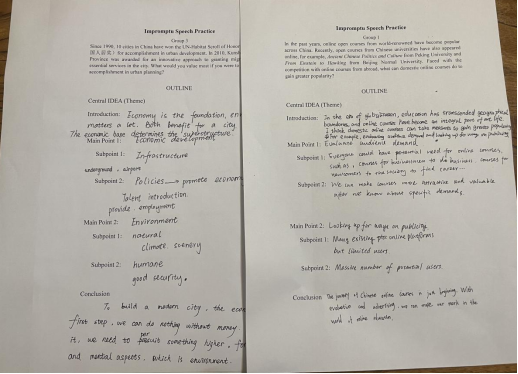 Impromptu Speech Practice
Group 3
Since 1990, 10 cities in China have won the UN-Habitat Scroll of Honor
for accomplishment in urban development. In 2010,
Province was awarded for an innovative approach to granting
essential services in the city. What would you value most if you were to
accomplishment in urban planning?
OUTLINE
Central IDEA (Theme)
Introduction: Economy is the foundation,
matters a lot. Both benefit for a city
The economic base determines the superstructure.
Main Point 1: Economic development
Subpoint 1: Infrastructure
underground, airport
Subpoint 2: Policies → promote econom
Talent introduction
provide employment
Main Point 2: Environment
Subpoint 1: natural
climate scenery
Subpoint 2: humane
good security.
Conclusion
To build a modern city, the eco
first step, we can do nothing without money.
it, we need to pursuit something higher,
and mental aspects, which is environment.
Impromptu Speech Practice
Group 1
In the past years, online open courses from world-renowned have become popular
across China. Recently, open courses from Chinese universities have also appeared
online, for example, Ancient Chinese Culture and Culture from Peking University and
From Einstein to Hawking from Beijing Normal University. Faced with the
competition with online courses from abroad, what can domestic online courses do to
gain greater popularity?
OUTLINE
Central IDEA (Theme)
Introduction: In the era of globalization, education has transcended geographical
boundaries, and online courses have become an integral part of our life.
I think domestic online courses can take measures to gain greater popularity
for example, evaluating audience demand and looking up for ways on publicity
Main Point 1: Evaluate audience demand
Subpoint 1: Everyone could have potential need for online courses,
such as, courses for businessmen to do business courses for
newcomers to find career
Subpoint 2: We can make courses more attractive and valuable
after we know about specific demand.
Main Point 2: Looking up for ways on publicity
Subpoint 1: Many existing online platforms
but limited users.
Subpoint 2: Massive number of potential users.
Conclusion The journey of Chinese online courses is just beginning. With
evaluation and advertising, we can make our mark in the
world of online education.